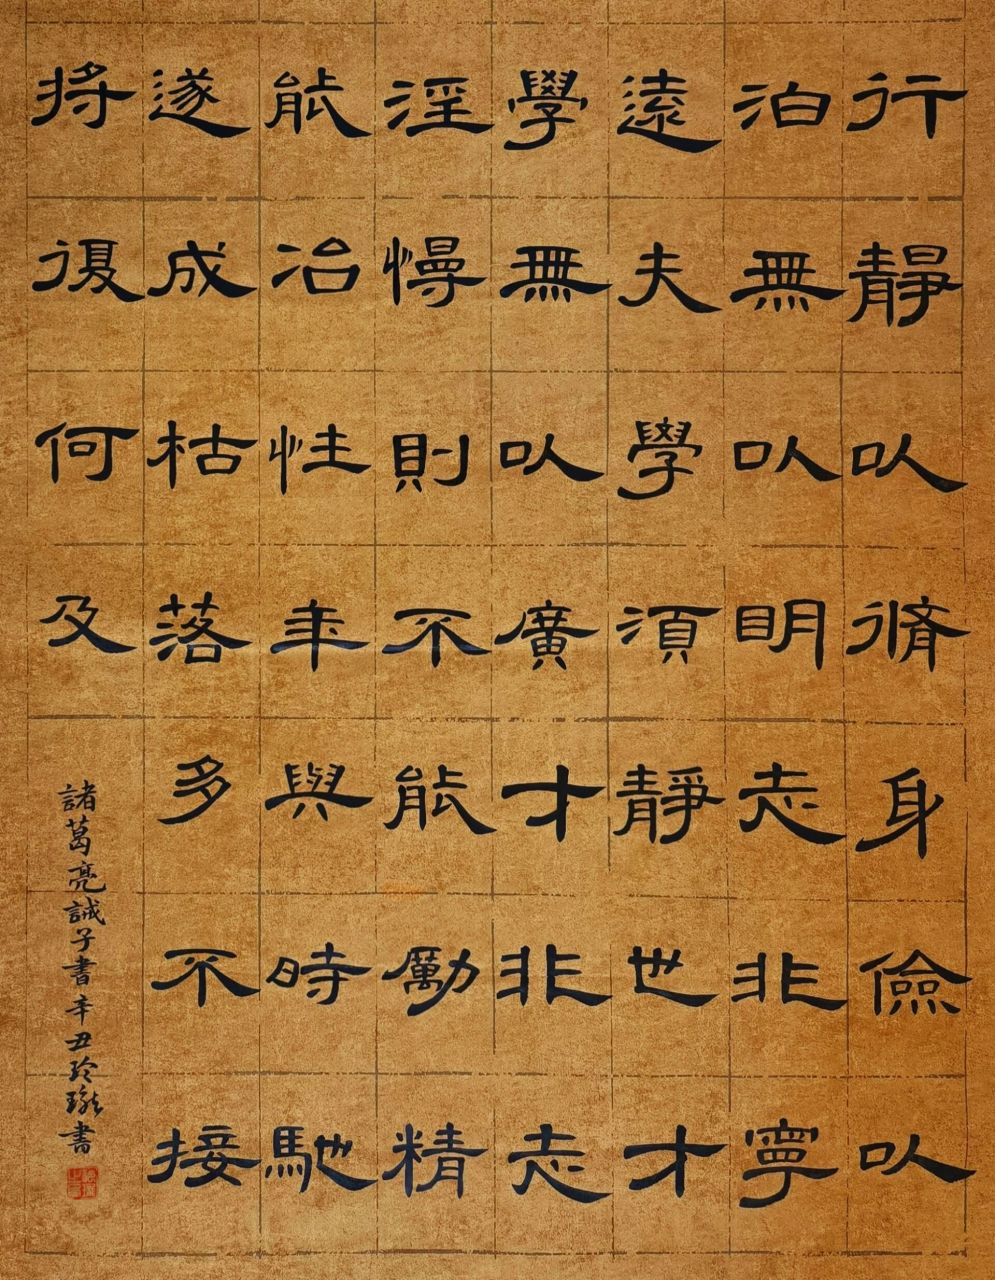 行靜以脩身儉以
泊無以明志非寧
遠夫學須靜世才
學無以廣才非志
淫慢則不能勵精
能冶性年與時馳
遂成枯落多不接
將復何及
諸葛亮誡子書辛丑玲瓏書